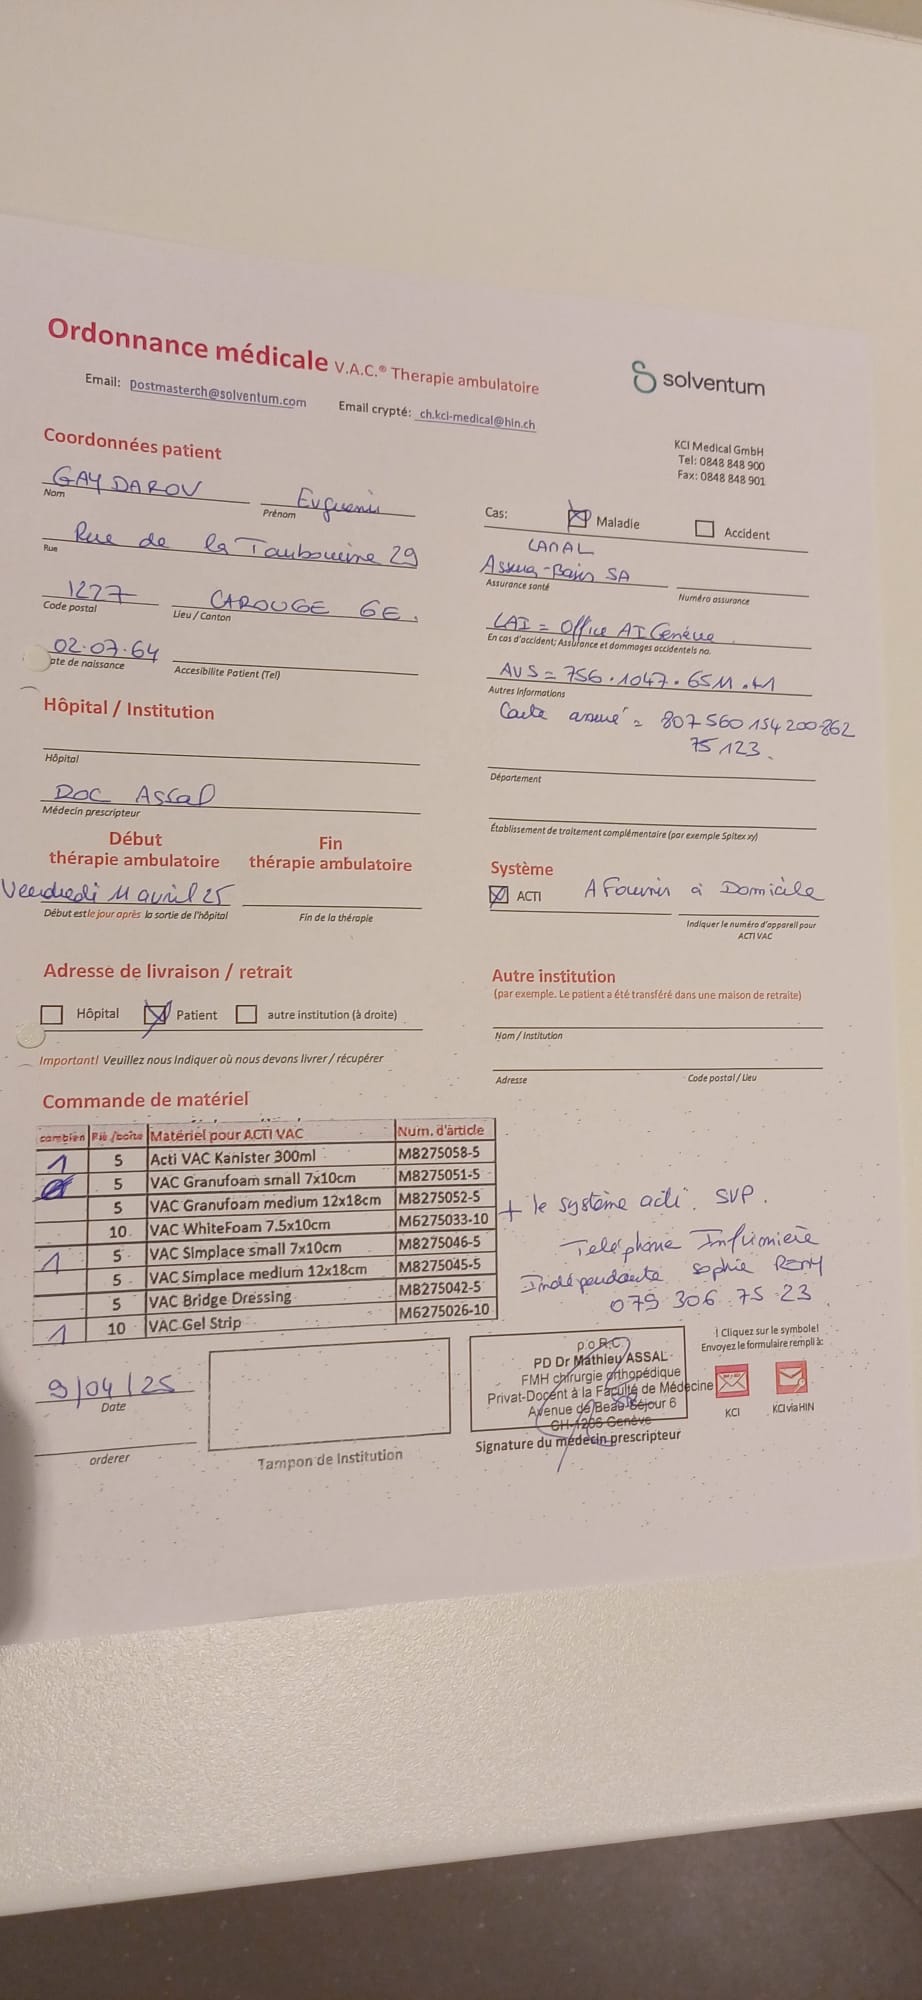 Ordonnance médicale V.A.C.® Therapie ambulatoire
solventum
Email: postmasterch@solventum.com Email crypté: ch.kci-medical@hin.ch
KCI Medical GmbH
Tel: 0848 848 900
Fax: 0848 848 901
Coordonnées patient
GAYDAROV Evguenii
Nom Prénom
Cas: Maladie Accident
Rue de la Tambourine 29
Rue
CAROUGE GE.
1227
Code postal Lieu / Canton
Assura-Basis SA
Assurance santé Numéro assurance
LAI = Office AI Genève
En cas d'accident; Assurance et dommages accidentels no.
02.07.64
ate de naissance Accesibilite Patient (Tel)
AVS = 756.1047.6511.11
Autres Informations
Carte assuré = 807560154200862
75123.
Hôpital / Institution
Hôpital
Département
Doc Assal
Médecin prescripteur
Établissement de traitement complémentaire (par exemple Spitex xy)
Début
thérapie ambulatoire
Fin
thérapie ambulatoire
Vendredi 11 avril 25
Début est le jour après la sortie de l'hôpital Fin de la thérapie
Système
ACTI A Fournir à Domicile
Indiquer le numéro d'appareil pour
ACTI VAC
Adresse de livraison / retrait
Hôpital Patient autre institution (à droite)
Important! Veuillez nous indiquer où nous devons livrer / récupérer
Autre institution
(par exemple. Le patient a été transféré dans une maison de retraite)
Nom / Institution
Adresse Code postal / Lieu
Commande de matériel
combien Piè /boîte Matériel pour ACTI VAC Num. d'article
1 5 Acti VAC Kanister 300ml M8275058-5
5 VAC Granufoam small 7x10cm M8275051-5
5 VAC Granufoam medium 12x18cm M8275052-5
10 VAC WhiteFoam 7.5x10cm M6275033-10
1 5 VAC Simplace small 7x10cm M8275046-5
5 VAC Simplace medium 12x18cm M8275045-5
5 VAC Bridge Dressing M8275042-5
1 10 VAC Gel Strip M6275026-10
+ le système acti. SVP.
Téléphone Infirmière
Indépendante Sophie
079 306 75 23
9/04/25
Date
orderer
Tampon de Institution
p.o
PD Dr Mathieu ASSAL
FMH chirurgie orthopédique
Privat-Docent à la Faculté de Médecine
Avenue de Beau-Séjour 6
CH-1206 Genève
Signature du médecin prescripteur
! Cliquez sur le symbole!
Envoyez le formulaire rempli à:
KCI KCI via HIN